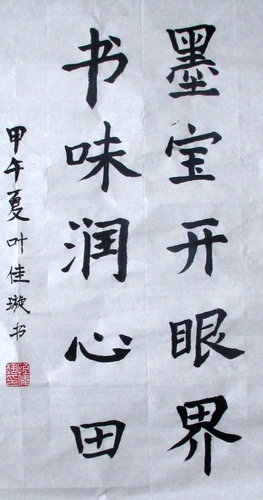 墨宝开眼界
书味润心田
甲午夏叶佳璇书